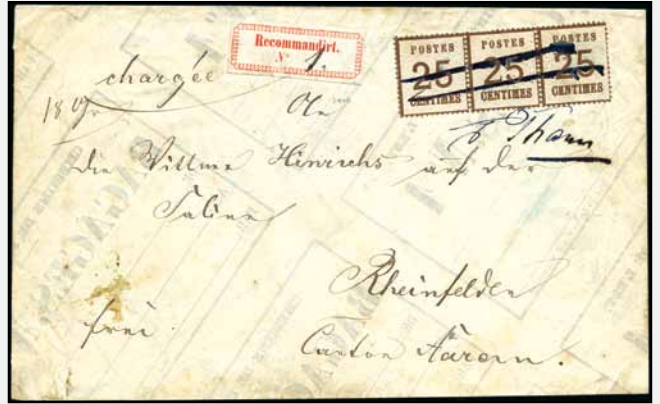 Recommandirt.
N° 1.
POSTES POSTES POSTES
25 25 25
CENTIMES CENTIMES CENTIMES
chargée
18 Gr
An
Thann
die Wittwe Hinrichs auf der
Saline
Rheinfelden
frei.
Canton Aarau.